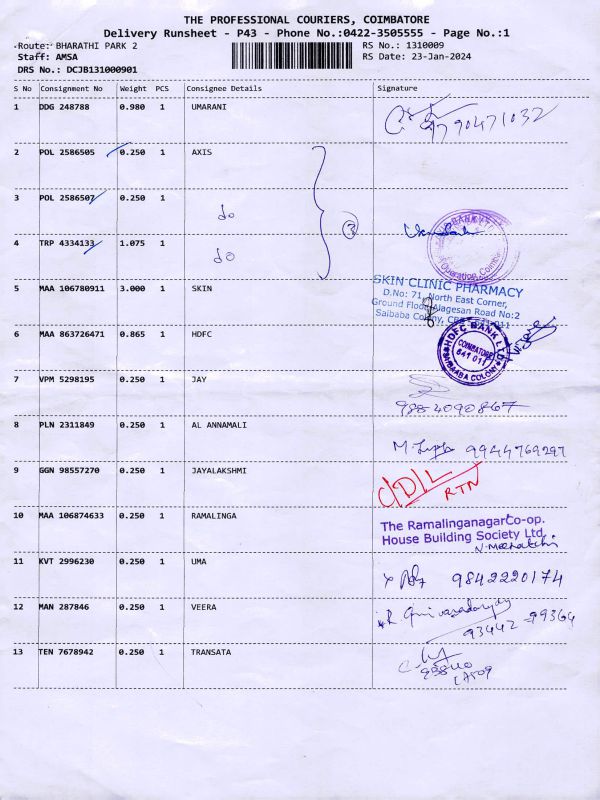 THE PROFESSIONAL COURIERS, COIMBATORE
Delivery Runsheet - P43 - Phone No.:0422-3505555 - Page No.:1
Route: BHARATHI PARK 2 RS No.: 1310009
Staff: AMSA RS Date: 23-Jan-2024
DRS No.: DCJB131000901
S No Consignment No Weight PCS Consignee Details Signature
1 DDG 248788 0.980 1 UMARANI
9790471032
2 POL 2586505 0.250 1 AXIS
3 POL 2586507 0.250 1
do
3
4 TRP 4334133 1.075 1
do
BANK
Operation
5 MAA 106780911 3.000 1 SKIN
SKIN CLINIC PHARMACY
D.No: 71, North East Corner,
Ground Floor, Alagesan Road No:2
Saibaba Colony, CBE - 641 011
6 MAA 863726471 0.865 1 HDFC
HDFC BANK LTD
COIMBATORE
641 011
SAIBAABA COLONY
7 VPM 5298195 0.250 1 JAY
9884090867
8 PLN 2311849 0.250 1 AL ANNAMALI
9944769297
9 GGN 98557270 0.250 1 JAYALAKSHMI
C/D/L
RTN
10 MAA 106874633 0.250 1 RAMALINGA
The Ramalinganagar Co-op.
House Building Society Ltd.
N.Meenatchi
11 KVT 2996230 0.250 1 UMA
9842220174
12 MAN 287846 0.250 1 VEERA
93442 - 99364
13 TEN 7678942 0.250 1 TRANSATA